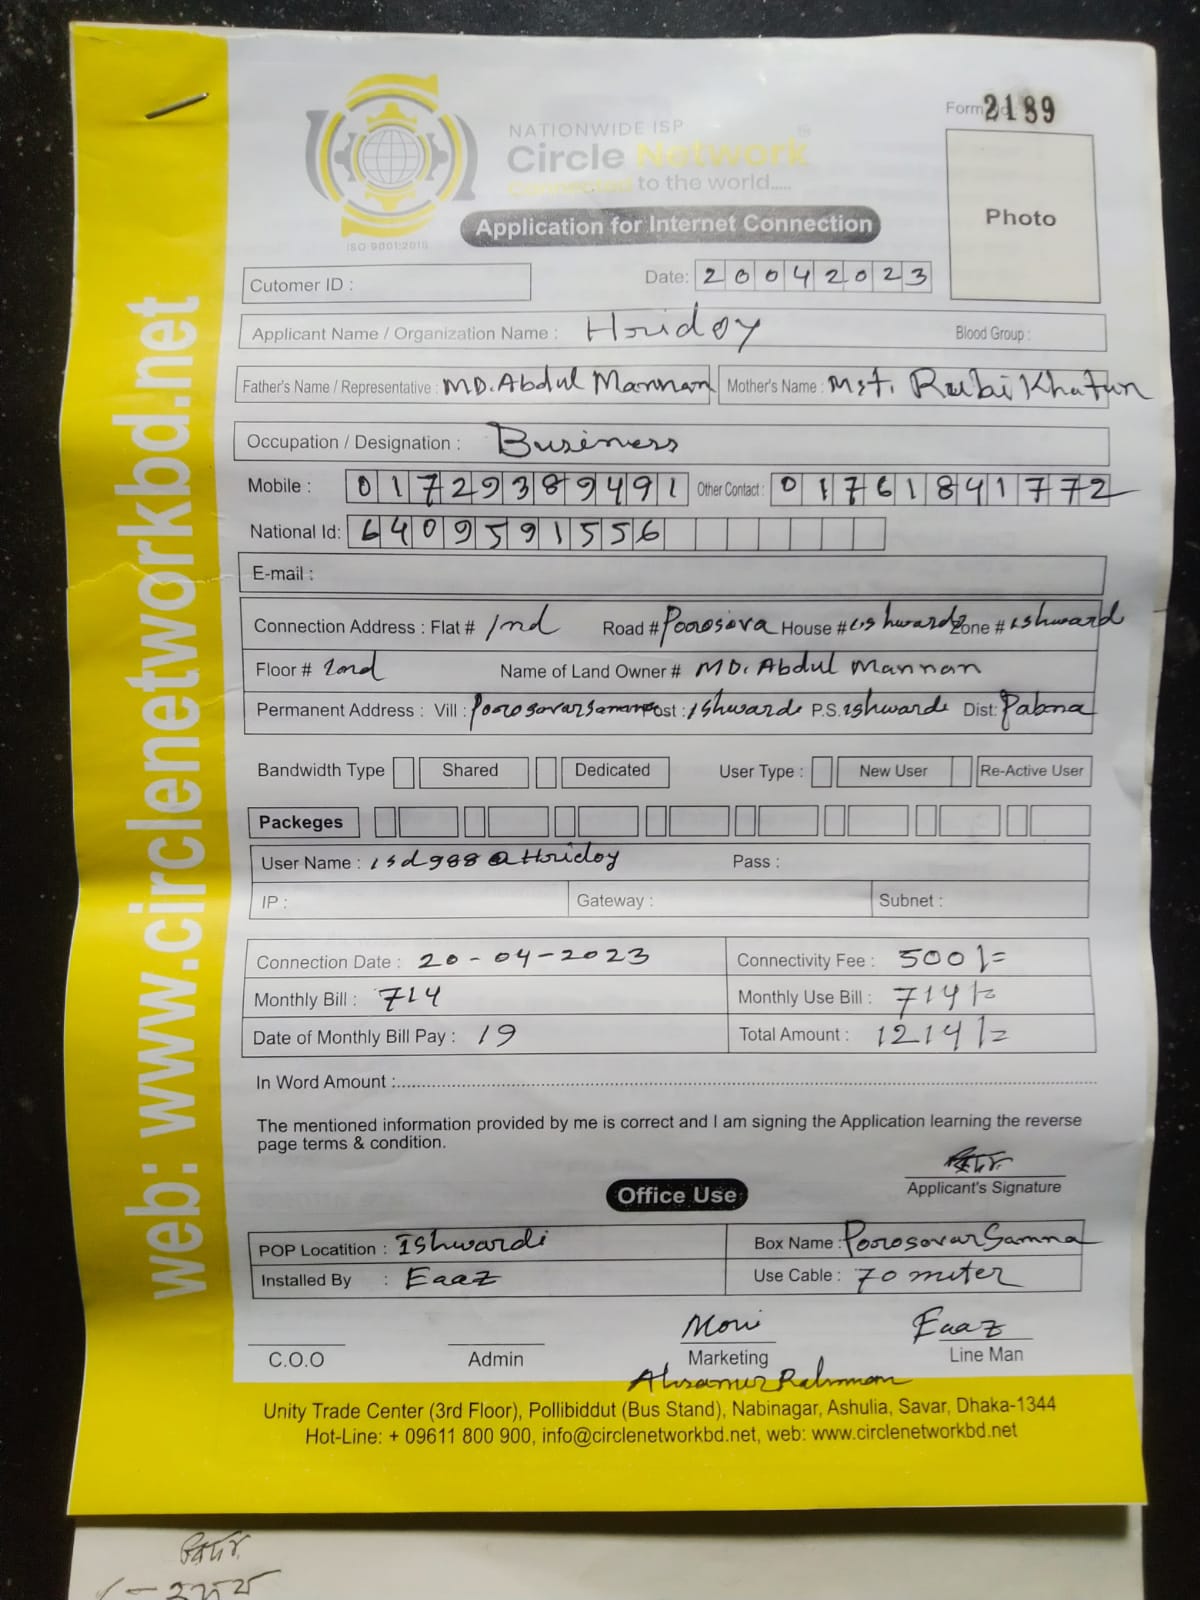 Form 2189
NATIONWIDE ISP
Circle Network
Connected to the world.....
ISO 9001:2015
Application for Internet Connection
Photo
Cutomer ID :
Date: 20042023
Applicant Name / Organization Name : Hridoy Blood Group :
Father's Name / Representative : MD. Abdul Mannan Mother's Name : Mst. Rubi Khatun
Occupation / Designation : Business
Mobile : 01729389491 Other Contact : 01761841772
National Id: 6409591556
E-mail :
Connection Address : Flat # 1nd Road # Poorosova House # Zone #
Floor # 2nd Name of Land Owner # MD. Abdul Mannan
Permanent Address : Vill : Post : Ishwardi P.S. Ishwardi Dist: Pabna
Bandwidth Type Shared Dedicated User Type : New User Re-Active User
Packeges
User Name : isd988@Hridoy Pass :
IP : Gateway : Subnet :
Connection Date : 20-04-2023 Connectivity Fee : 500/=
Monthly Bill : 714 Monthly Use Bill : 714/=
Date of Monthly Bill Pay : 19 Total Amount : 1214/=
In Word Amount :
The mentioned information provided by me is correct and I am signing the Application learning the reverse
page terms & condition.
Applicant's Signature
Office Use
POP Locatition : Ishwardi Box Name : Poorosovar Samna
Installed By : Eaaz Use Cable : 70 meter
Moni Eaaz
C.O.O Admin Marketing Line Man
Rahman
Unity Trade Center (3rd Floor), Pollibiddut (Bus Stand), Nabinagar, Ashulia, Savar, Dhaka-1344
Hot-Line: + 09611 800 900, info@circlenetworkbd.net, web: www.circlenetworkbd.net
web: www.circlenetworkbd.net